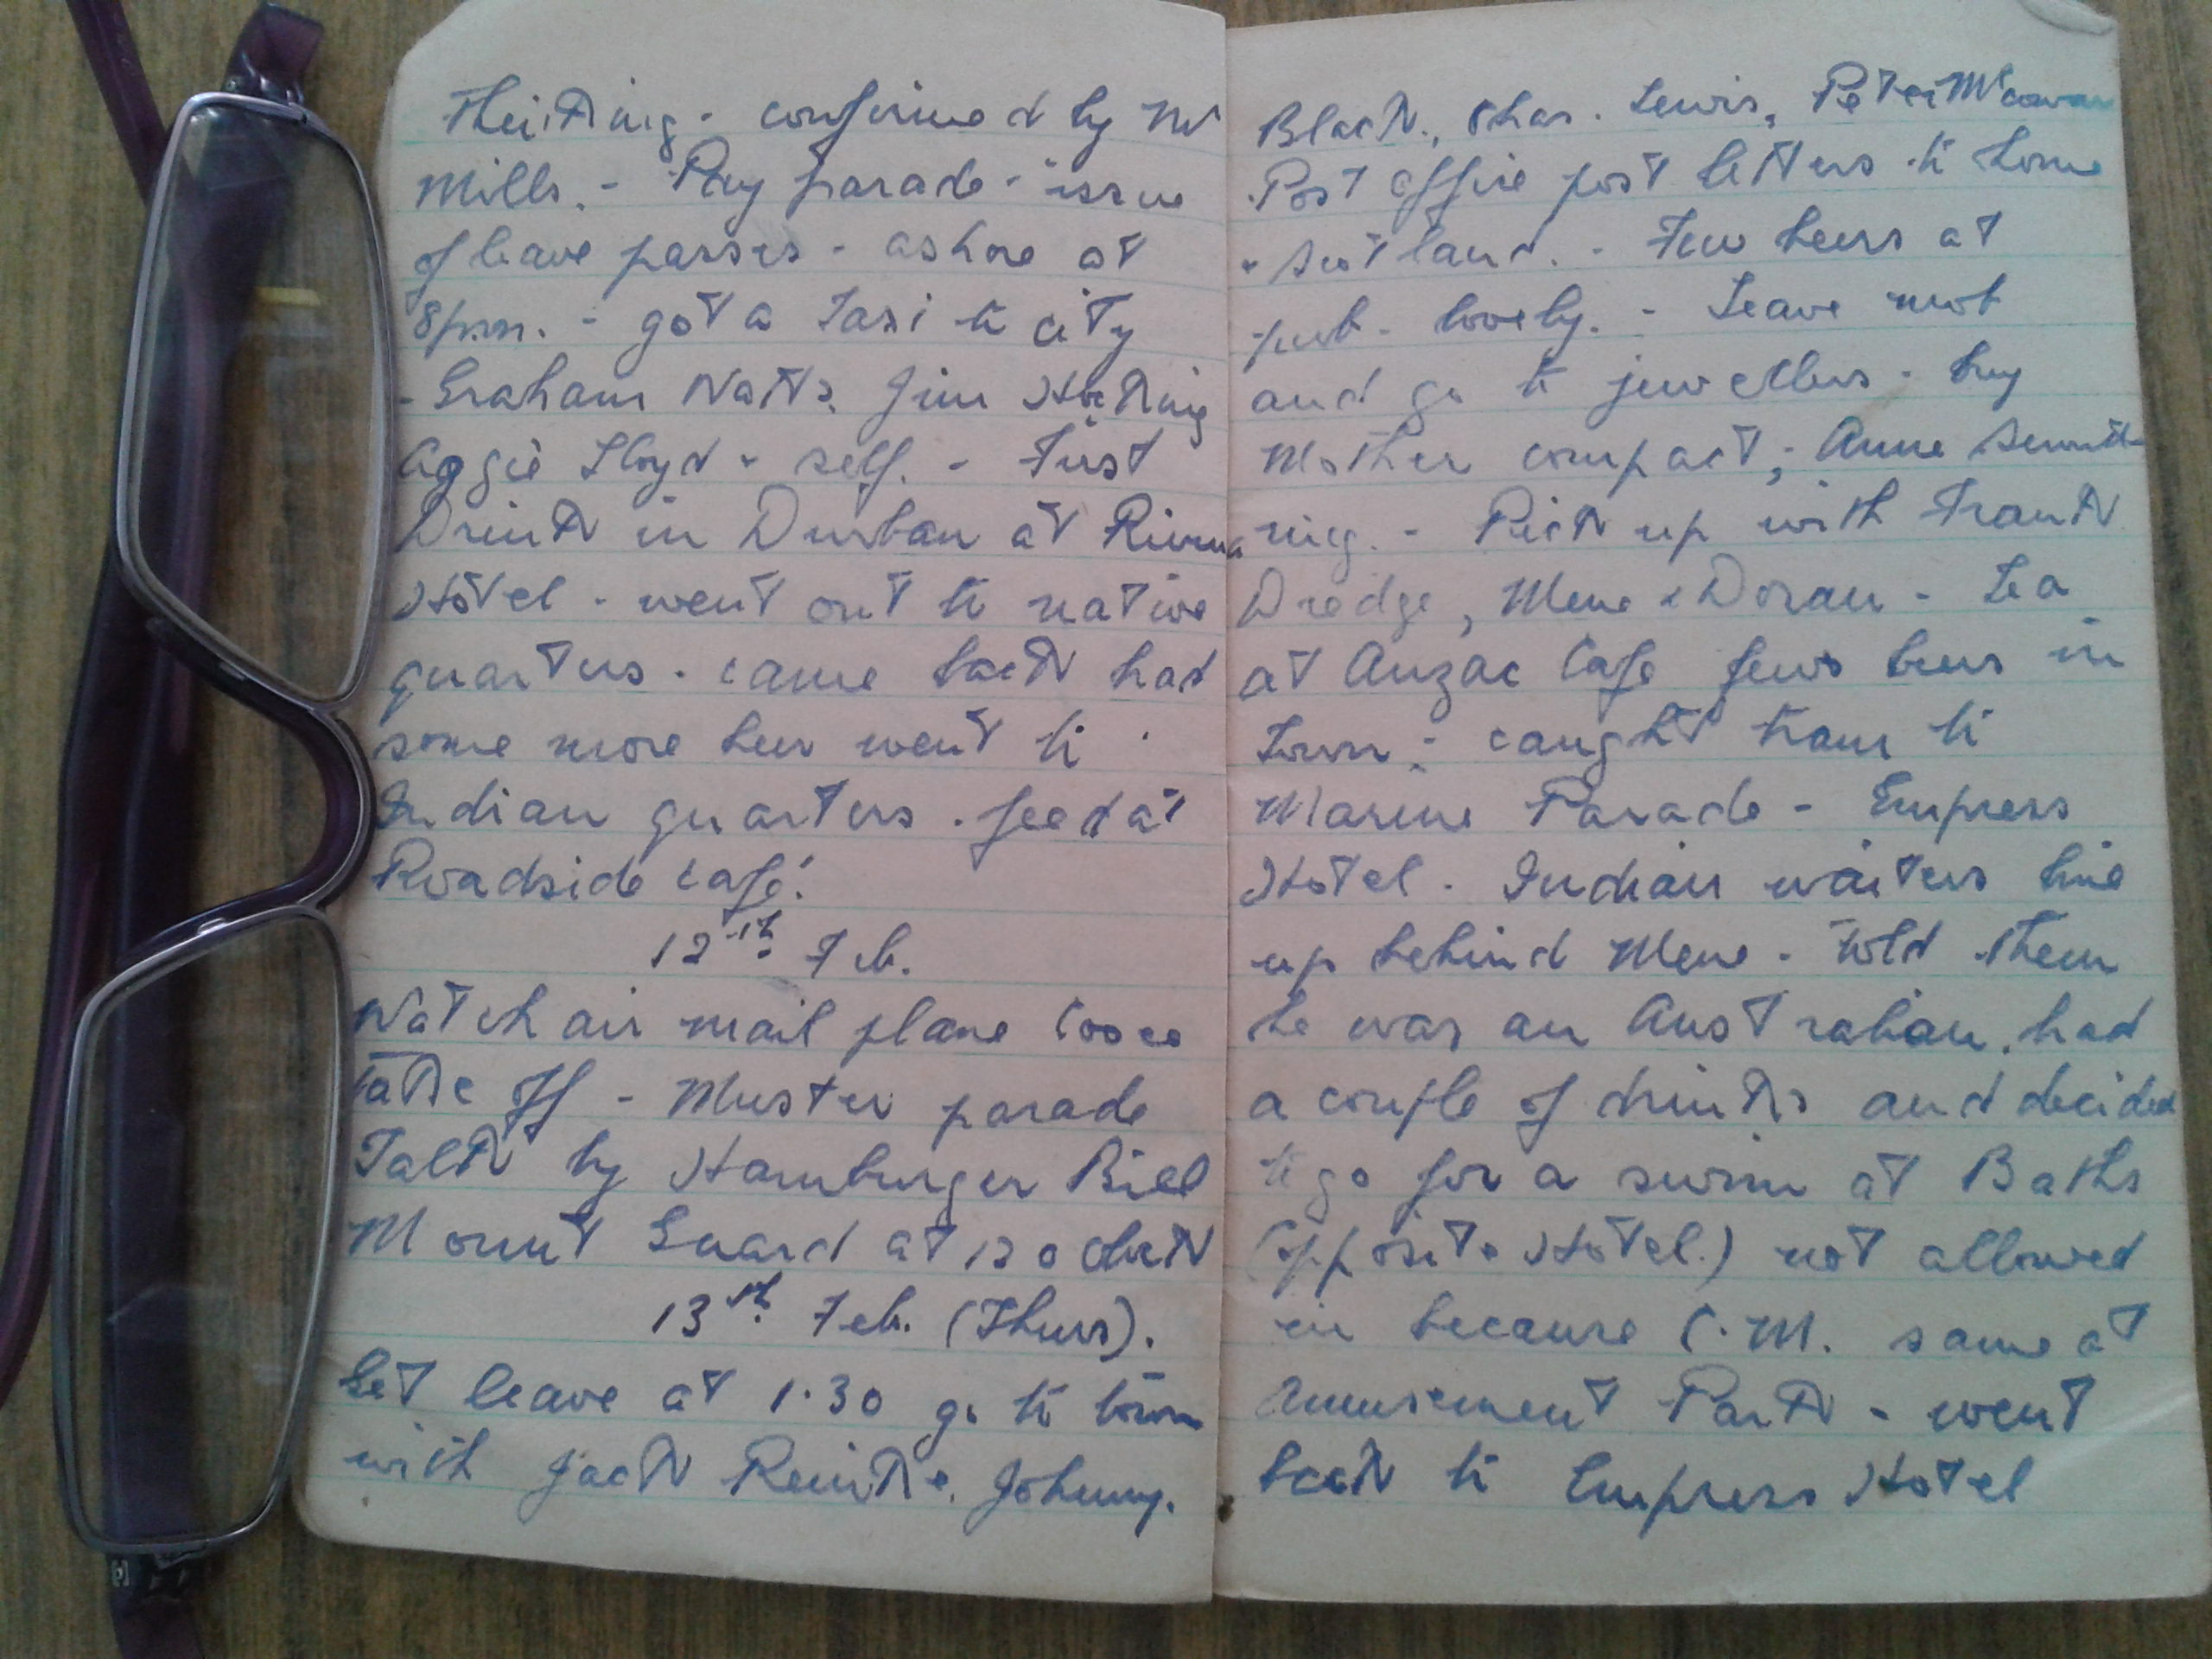 thinking - confirmed by Mr
Mills. - Pay parade - issue
of leave passes - ashore at
8 p.m. - got a Taxi to city
- Graham Watts, Jim
Aggie Lloyd & self. - First
Drink in Durban at Riviera
Hotel - went out to native
quarters - came back had
some more beer went to
Indian quarters - feed at
Roadside Café.
12th Feb.
Watch air mail plane
take off - Muster parade
Talk by Hamburger Bill
Mount Guard at 12 o clock
13th Feb. (Thurs).
Get leave at 1.30 go to town
with Jack Johnny.
Black, Chas. Lewis, Peter McCowan
Post Office post letters to home
& Scotland. - Few beers at
pub - lovely. - Leave mob
and go to jewellers - buy
Mother compact; Anne
ring. - Pick up with Frank
Dredge, Mene & Doran - Tea
at Anzac Cafe few beers in
Town; caught tram to
Marine Parade - Empress
Hotel. Indian waiters line
up behind Mene - told them
he was an Australian. had
a couple of drinks and decided
to go for a swim at Baths
(opposite Hotel.) not allowed
in because C.M. same at
Amusement Park - went
back to Empress Hotel